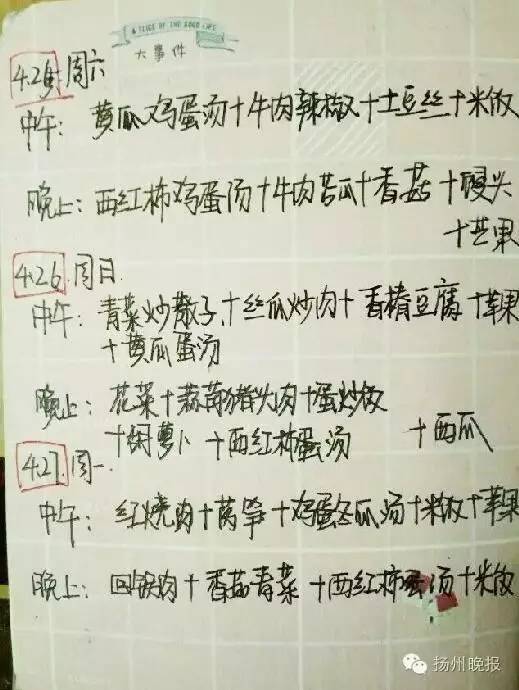 A SLICE OF THE GOOD LIFE
大事件
4.25 周六
中午: 黄瓜鸡蛋汤+牛肉辣椒+土豆丝+米饭
晚上: 西红柿鸡蛋汤+牛肉苦瓜+香菇+馒头
+芒果
4.26 周日
中午: 青菜炒馓子+丝瓜炒肉+香椿豆腐+苹果
+黄瓜蛋汤
晚上: 花菜+蒜苗猪头肉+蛋炒饭
+焖萝卜+西红柿蛋汤 +西瓜
4.27. 周一.
中午: 红烧肉+莴笋+鸡蛋冬瓜汤+米饭+苹果
晚上: 回锅肉+香菇青菜+西红柿蛋汤+米饭
扬州晚报